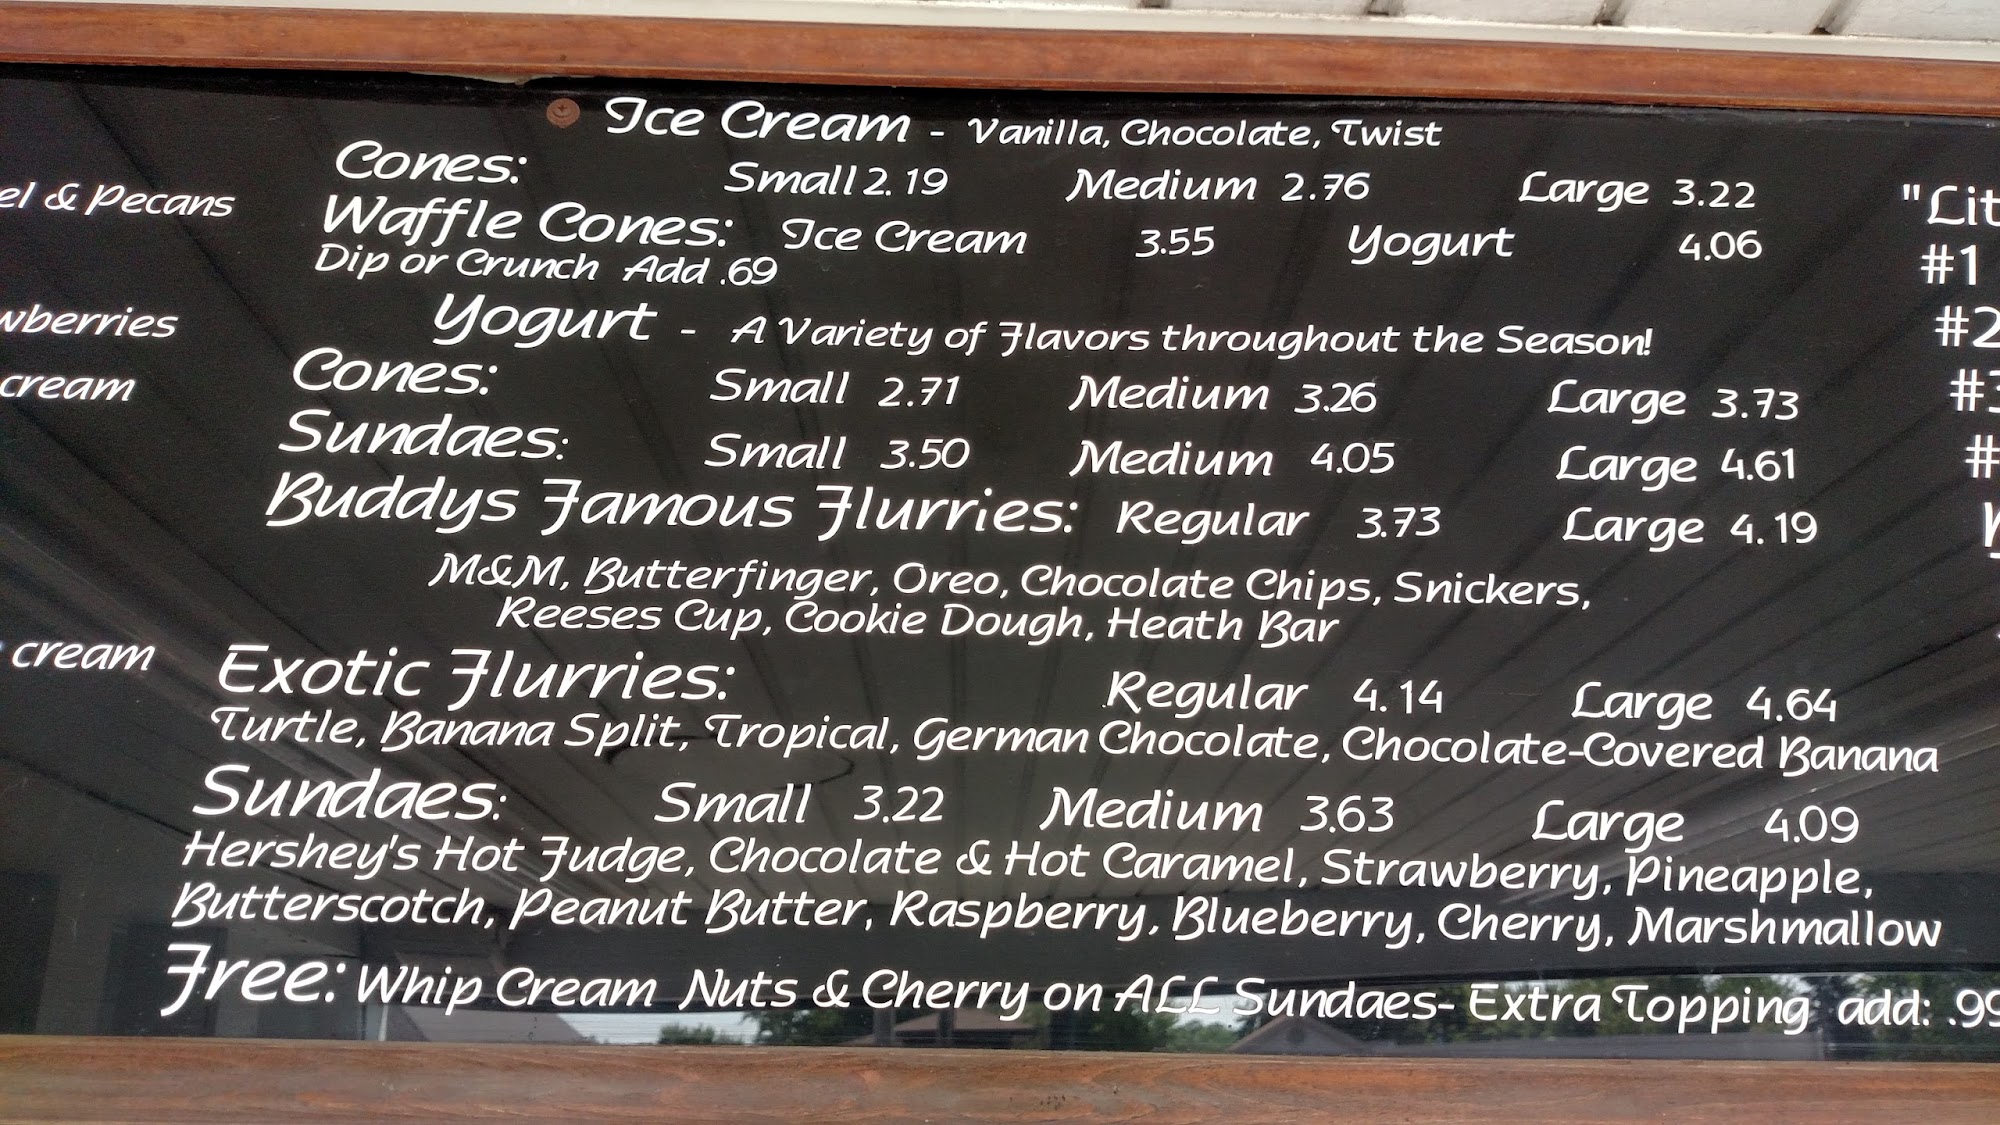 Ice Cream - Vanilla, Chocolate, Twist
Cones: Small 2.19 Medium 2.76 Large 3.22
Waffle Cones: Ice Cream 3.55 Yogurt 4.06
Dip or Crunch Add .69
Yogurt - A Variety of Flavors throughout the Season!
Cones: Small 2.71 Medium 3.26 Large 3.73
Sundaes: Small 3.50 Medium 4.05 Large 4.61
Buddys Famous Flurries: Regular 3.73 Large 4.19
M&M, Butterfinger, Oreo, Chocolate Chips, Snickers,
Reeses Cup, Cookie Dough, Heath Bar
Exotic Flurries: Regular 4.14 Large 4.64
Turtle, Banana Split, Tropical, German Chocolate, Chocolate-Covered Banana
Sundaes: Small 3.22 Medium 3.63 Large 4.09
Hershey's Hot Fudge, Chocolate & Hot Caramel, Strawberry, Pineapple,
Butterscotch, Peanut Butter, Raspberry, Blueberry, Cherry, Marshmallow
Free: Whip Cream Nuts & Cherry on ALL Sundaes- Extra Topping add: .99
& Pecans
cream
cream
#1
#2
#3